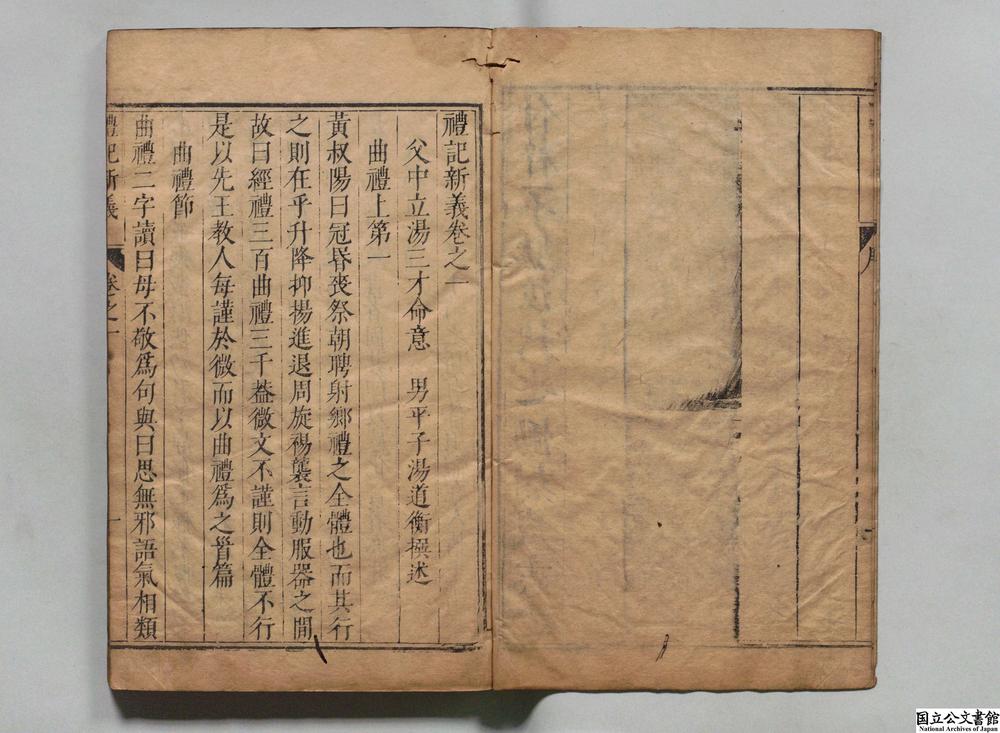 禮記新義卷之一
父中立湯三才命意　男平子湯道衡撰述
曲禮上第一
黃叔陽曰冠昏喪祭朝聘射鄉禮之全體也而其行
之則在乎升降抑揚進退周旋裼襲言動服器之間
故曰經禮三百曲禮三千葢微文不謹則全體不行
是以先王教人每謹於微而以曲禮爲之首篇
曲禮節
曲禮二字讀曰毋不敬爲句與曰思無邪語氣相類
禮記新義　卷之一　一
国立公文書館
National Archives of Japan